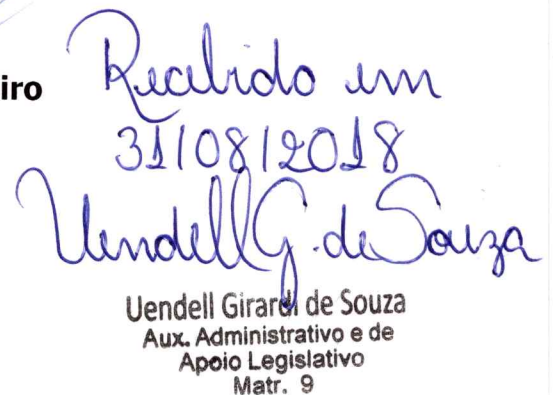 Recebido em
iro
31/08/2018
Uendell G. de Souza
Uendell Girardi de Souza
Aux. Administrativo e de
Apoio Legislativo
Matr. 9